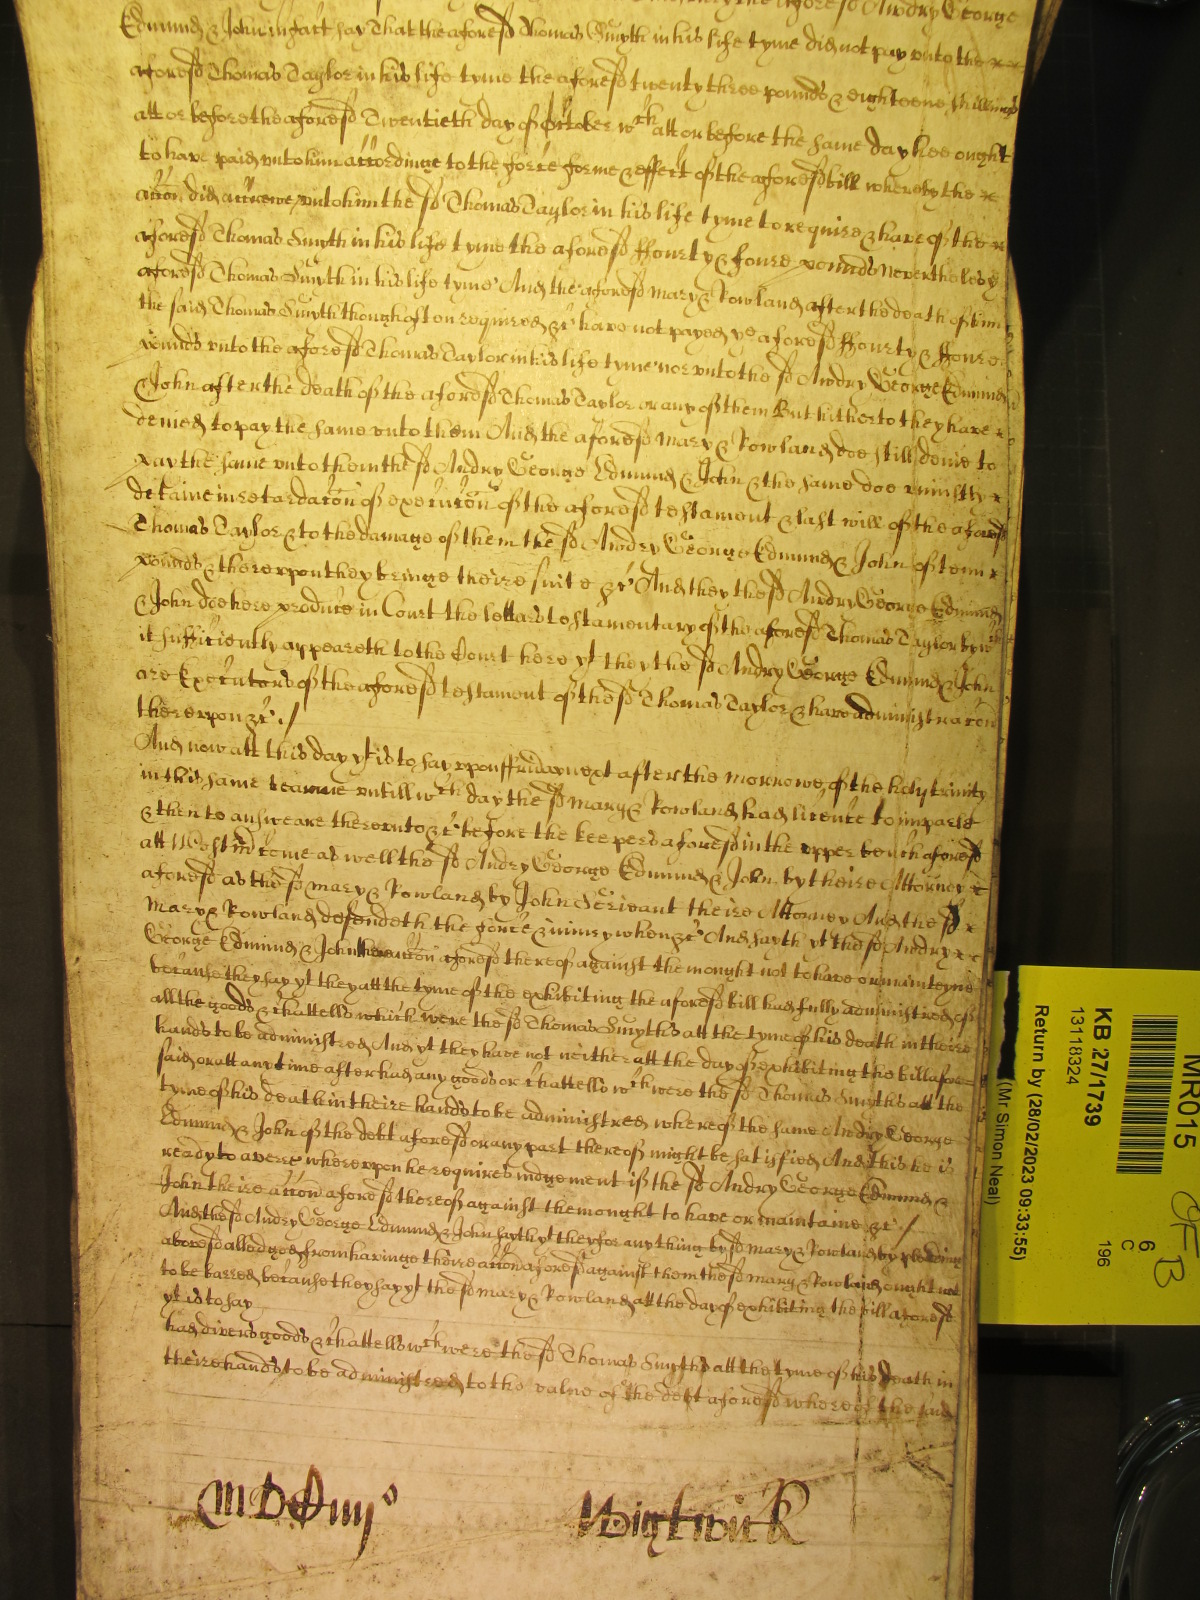 aforesd Andry George
Edmund & John in fact say That the aforesd Thomas Smyth in his life tyme did not pay vnto the
aforesd Thomas Taylor in his life tyme the aforesd twenty three pounds & eighteene shillings
att or before the aforesd Twentieth day of October wch att or before the same day hee ought
to have paid vnto him accordinge to the force forme & effect of the aforesd bill whereby the
accon did accrewe vnto him the sd Thomas Taylor in his life tyme to require & have of the
aforesd Thomas Smyth in his life tyme the aforesd ffourty & foure pounds Neverthelesse
aforesd Thomas Smyth in his life tyme And the aforesd Mary & Rowland after the death of him
the said Thomas Smyth though often required &c have not payed ye aforesd ffourty & ffoure
pounds vnto the aforesd Thomas Taylor in his life tyme nor vnto the sd Andry George Edmund
& John after the death of the aforesd Thomas Taylor or any of them But hitherto they have
denied to pay the same vnto them And the aforesd Mary & Rowland doe still denie to
pay the same vnto them the sd Andry George Edmund & John & the same doe uniustly
detaine in retardacon of execucon of the aforesd testament & last will of the aforesd
Thomas Taylor & to the damage of them the sd Andry George Edmund & John of tenn
pounds & therevpon they bringe theire suite &c And they the sd Andry George Edmund
& John doe here produce in Court the letters testamentary of the aforesd Thomas Taylor by wch
it sufficiently appeareth to the Court here yt they the sd Andry George Edmund & John
are Executors of the aforesd testament of the sd Thomas Taylor & have administracon
therevpon &c ./
And now att this day yt is to say vpon ffriday next after the morrowe of the holy trinity
in this same tearme vntill wch day the sd Mary & Rowland had licence to imparle
& then to answeare therevnto &c before the keepers aforesd in the vpper bench aforesd
att Westmr come as well the sd Andry George Edmund & John by theire Attorney
aforesd as the sd Mary & Rowland by John Scrivant theire Attorney And the sd
Mary & Rowland defendeth the force & iniury when &c And sayth yt the sd Andry
George Edmund & John there accon aforesd thereof against them ought not to have or mainteyne
because they say yt they att the tyme of the exhibiting the aforesd bill had fully administred of
all the goods & chattells which were the sd Thomas Smyths att the tyme of his death in theire
hands to be administred And yt they have not neither att the day of exhibiting the bill afore
said or att any time after had any goods or chattells wch were the sd Thomas Smyths att the
tyme of his death in theire hands to be administred whereof the same Andry George
Edmund & John of the debt aforesd or any part thereof might be satisfied And this he is
ready to averre wherevpon he requires iudgement if the sd Andry George Edmund &
John theire accon aforesd thereof against them ought to have or maintaine &c ./
And the sd Andry George Edmund & John sayth yt they for any thing by sd Mary & Rowland by pleading
abovesd alledged from havinge theire accon aforesd against them the sd Mary & Rowland ought not
to be barred because they say yt the sd Mary & Rowland att the day of exhibiting the bill aforesd
yt is to say
had divers goods & chattells wch were the sd Thomas Smyths att the tyme of his death in
theire hands to be administred to the value of the debt aforesd whereof the said
Wightwick
MR015
6
C
196
KB 27/1739
13118324
Return by (28/02/2023 09:33:55)
(Mr Simon Neal)